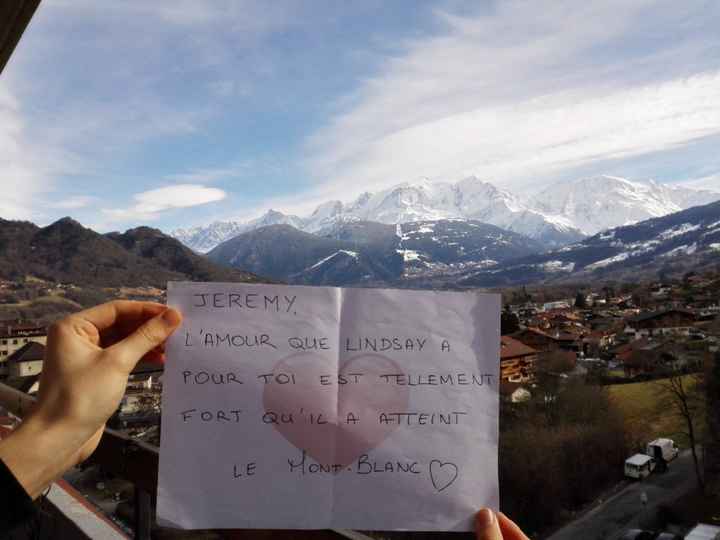 JEREMY,
L'AMOUR QUE LINDSAY A
POUR TOI EST TELLEMENT
FORT QU'IL A ATTEINT
LE MONT-BLANC ♡